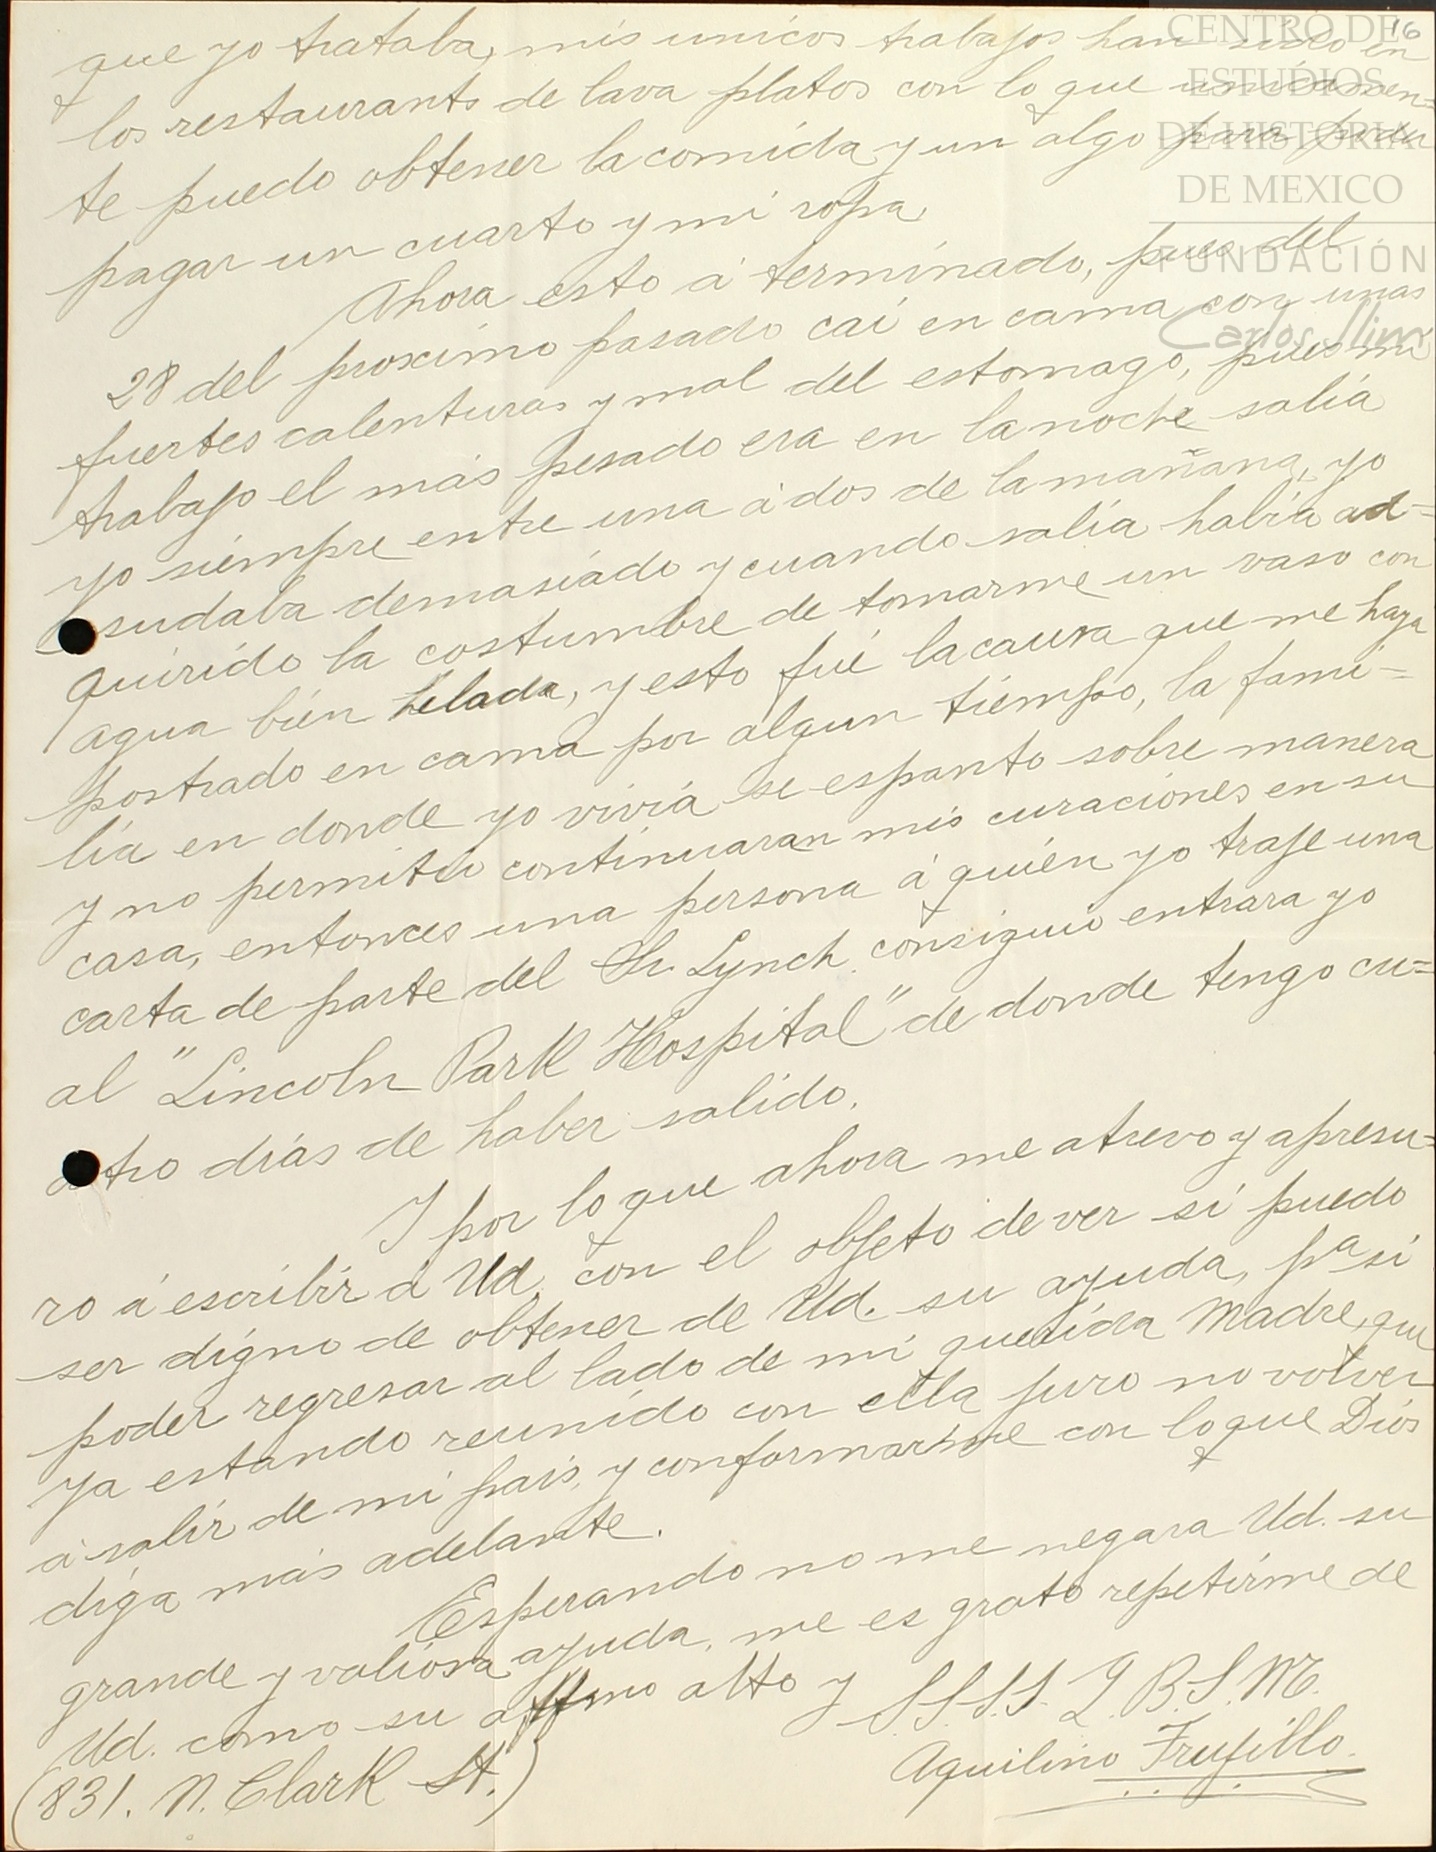 CENTRO DE
ESTUDIOS
DE HISTORIA
DE MEXICO
FUNDACIÓN
Carlos Slim
16
que yo trataba, mis unicos trabajos han sido en
los restaurants de lava platos con lo que unicamen=
te puedo obtener la comida y un algo para poder
pagar un cuarto y mi ropa,
Ahora esto á terminado, pues del
28 del proximo pasado caí en cama con unas
fuertes calenturas y mal del estomago, pues mi
trabajo el más pesado era en la noche salía
yo siempre entre una á dos de la mañana, yo
sudaba demasiado y cuando salía había ad=
quirido la costumbre de tomarme un vaso con
agua bien helada, y esto fué la causa que me haya
postrado en cama por algun tiempo, la fami=
lia en donde yo vivía se espanto sobre manera
y no permitio continuaran mis curaciones en su
casa, entonces una persona á quién yo traje una
carta de parte del Sr. Lynch consiguio entrara yo
al "Lincoln Park Hospital" de donde tengo cu=
atro días de haber salido.
I por lo que ahora me atrevo y apresu=
ro á escribir á Ud, con el objeto de ver si puedo
ser digno de obtener de Ud. su ayuda, pª si
poder regresar al lado de mi querida Madre, que
ya estando reunido con ella juro no volver
á salir de mi país, y conformarme con lo que Diós
diga más adelante.
Esperando no me negara Ud. su
grande y valiosa ayuda, me es grato repetirme de
Ud. como su affmo atto y S.S.S.S. Q. B. S. M.
Aquilino Trujillo.
(831. N. Clark St.)